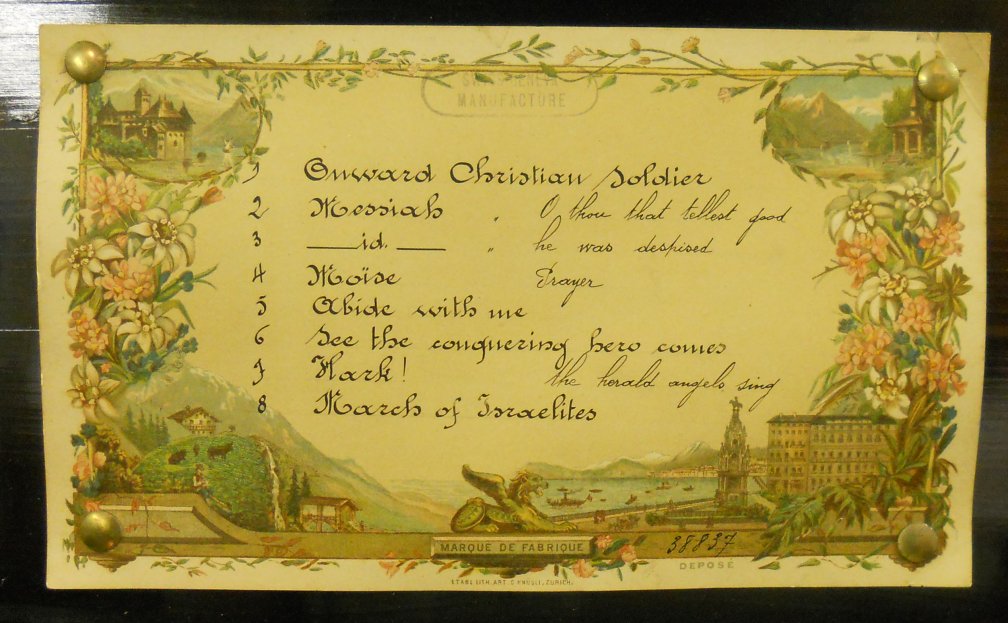 MANUFACTURE
1 Onward Christian Soldier
2 Messiah „ O thou that tellest good
3 —id.— „ he was despised
4 Moïse Prayer
5 Abide with me
6 See the conquering hero comes
7 Hark! the herald angels sing
8 March of Israelites
MARQUE DE FABRIQUE
38837
DEPOSÉ
ETABL. LITH. ART. ZURICH.